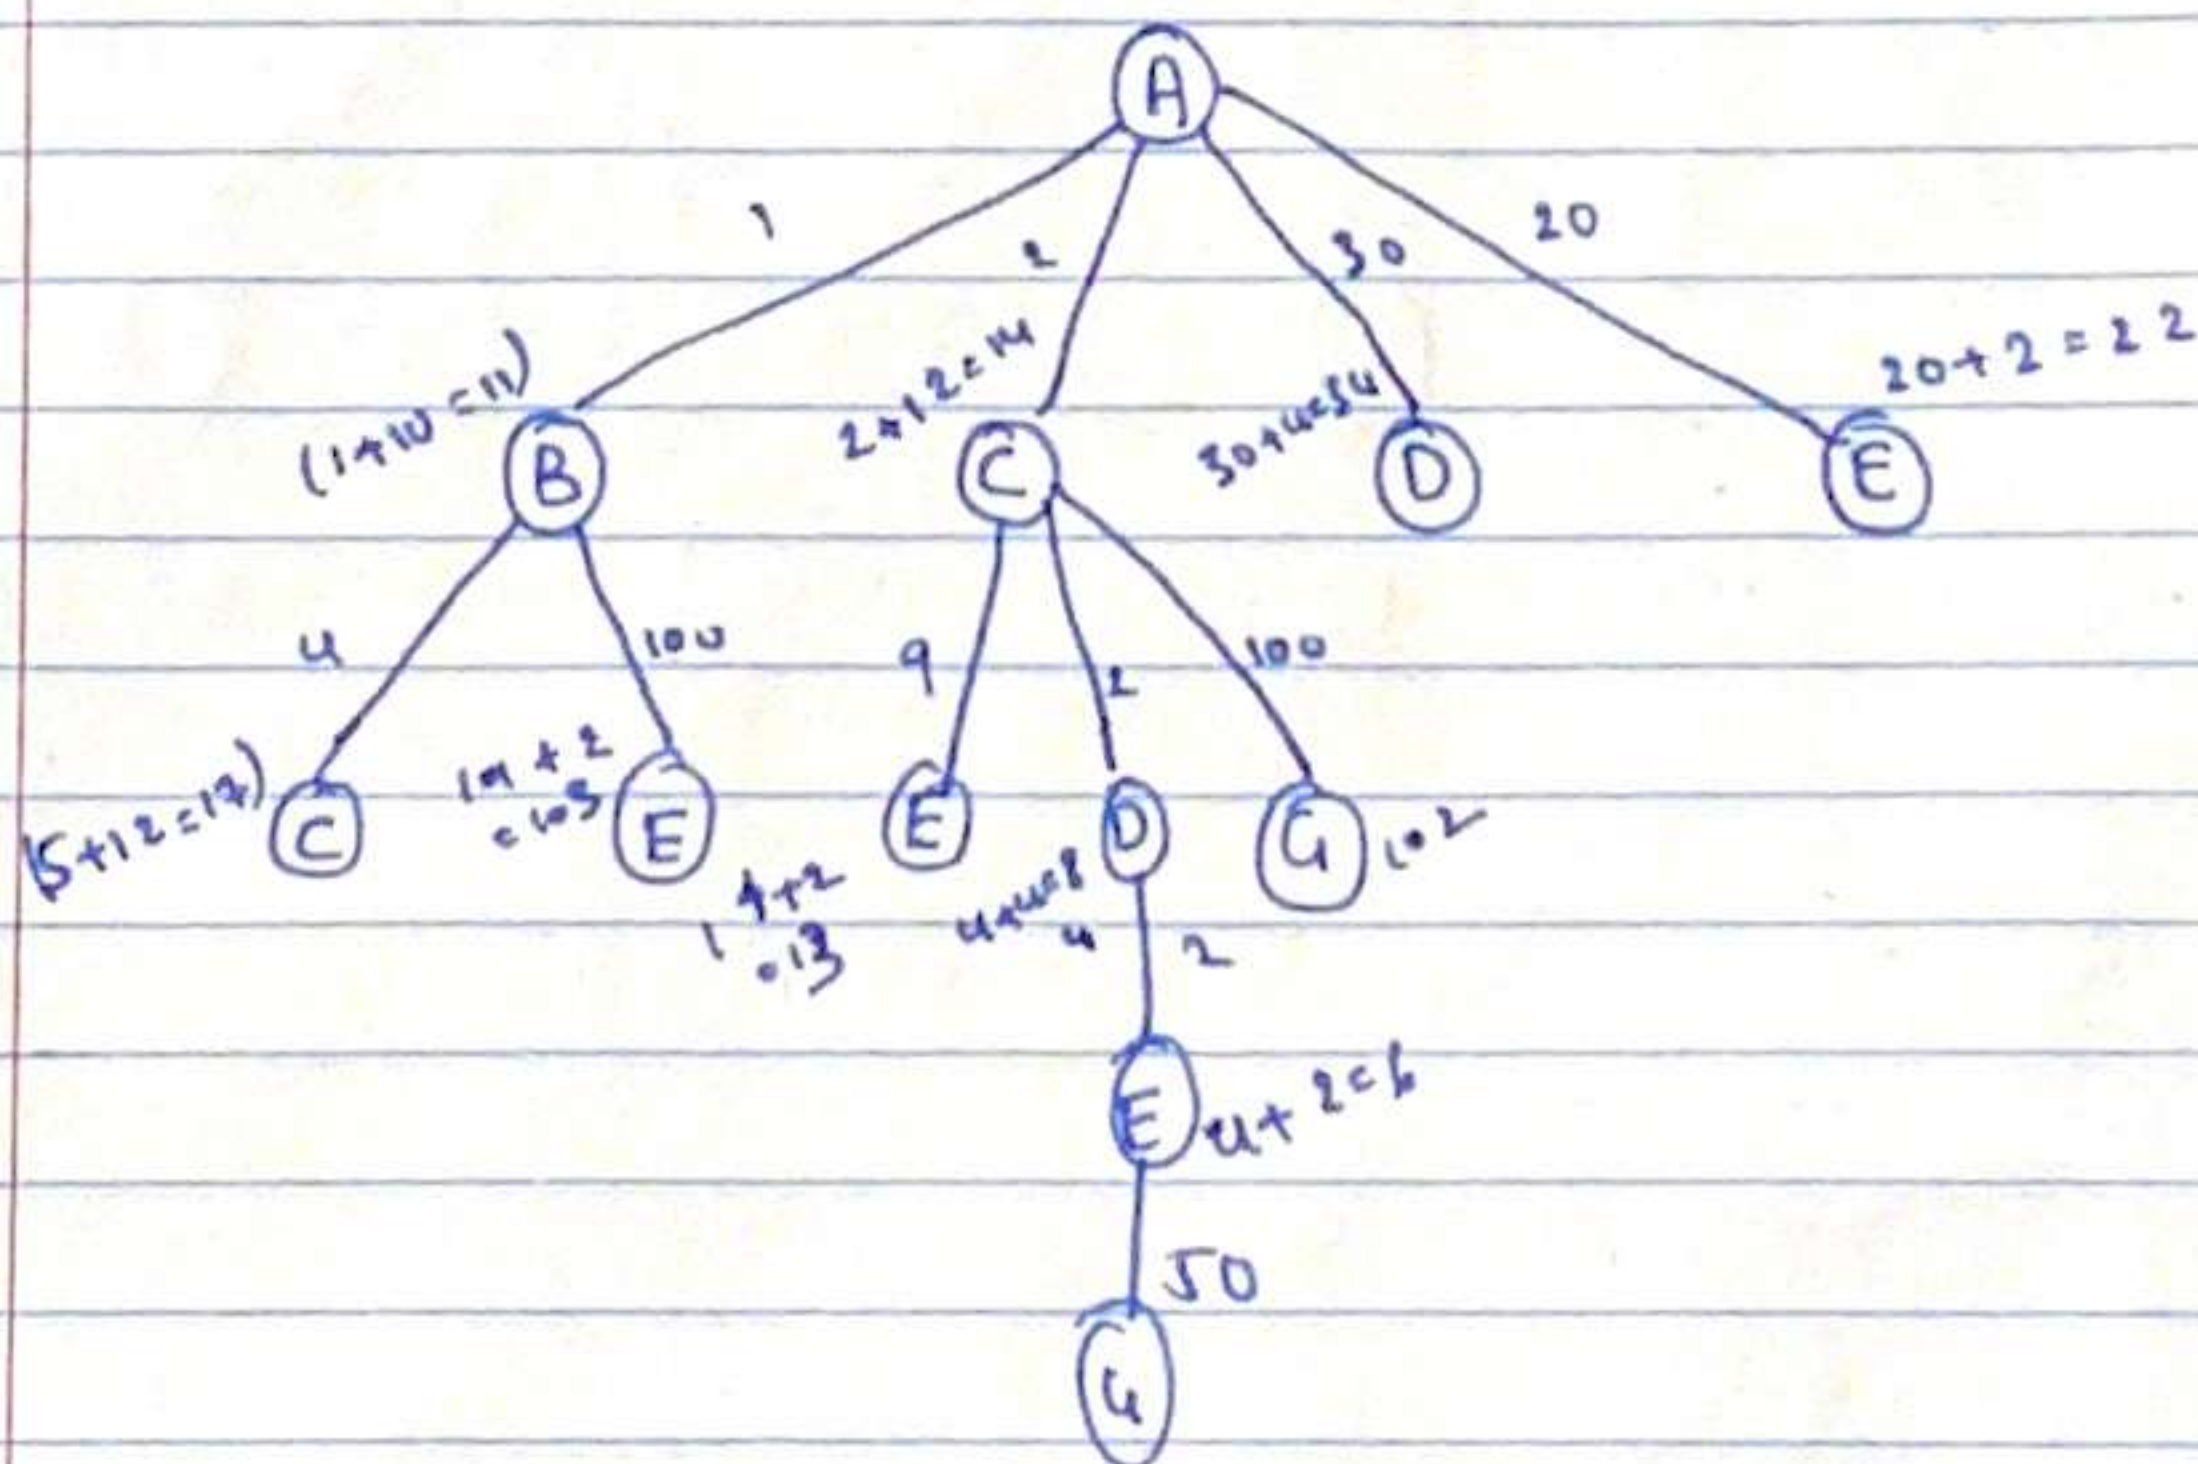 A
1
2
30
20
(1+10=11)
2+12=14
30+4=34
20+2=22
B
C
D
E
4
100
9
2
100
(5+12=17)
C
101+2
=103
E
E
D
G
102
11+2
=13
4+4=8
4
2
E
4+2=6
50
G